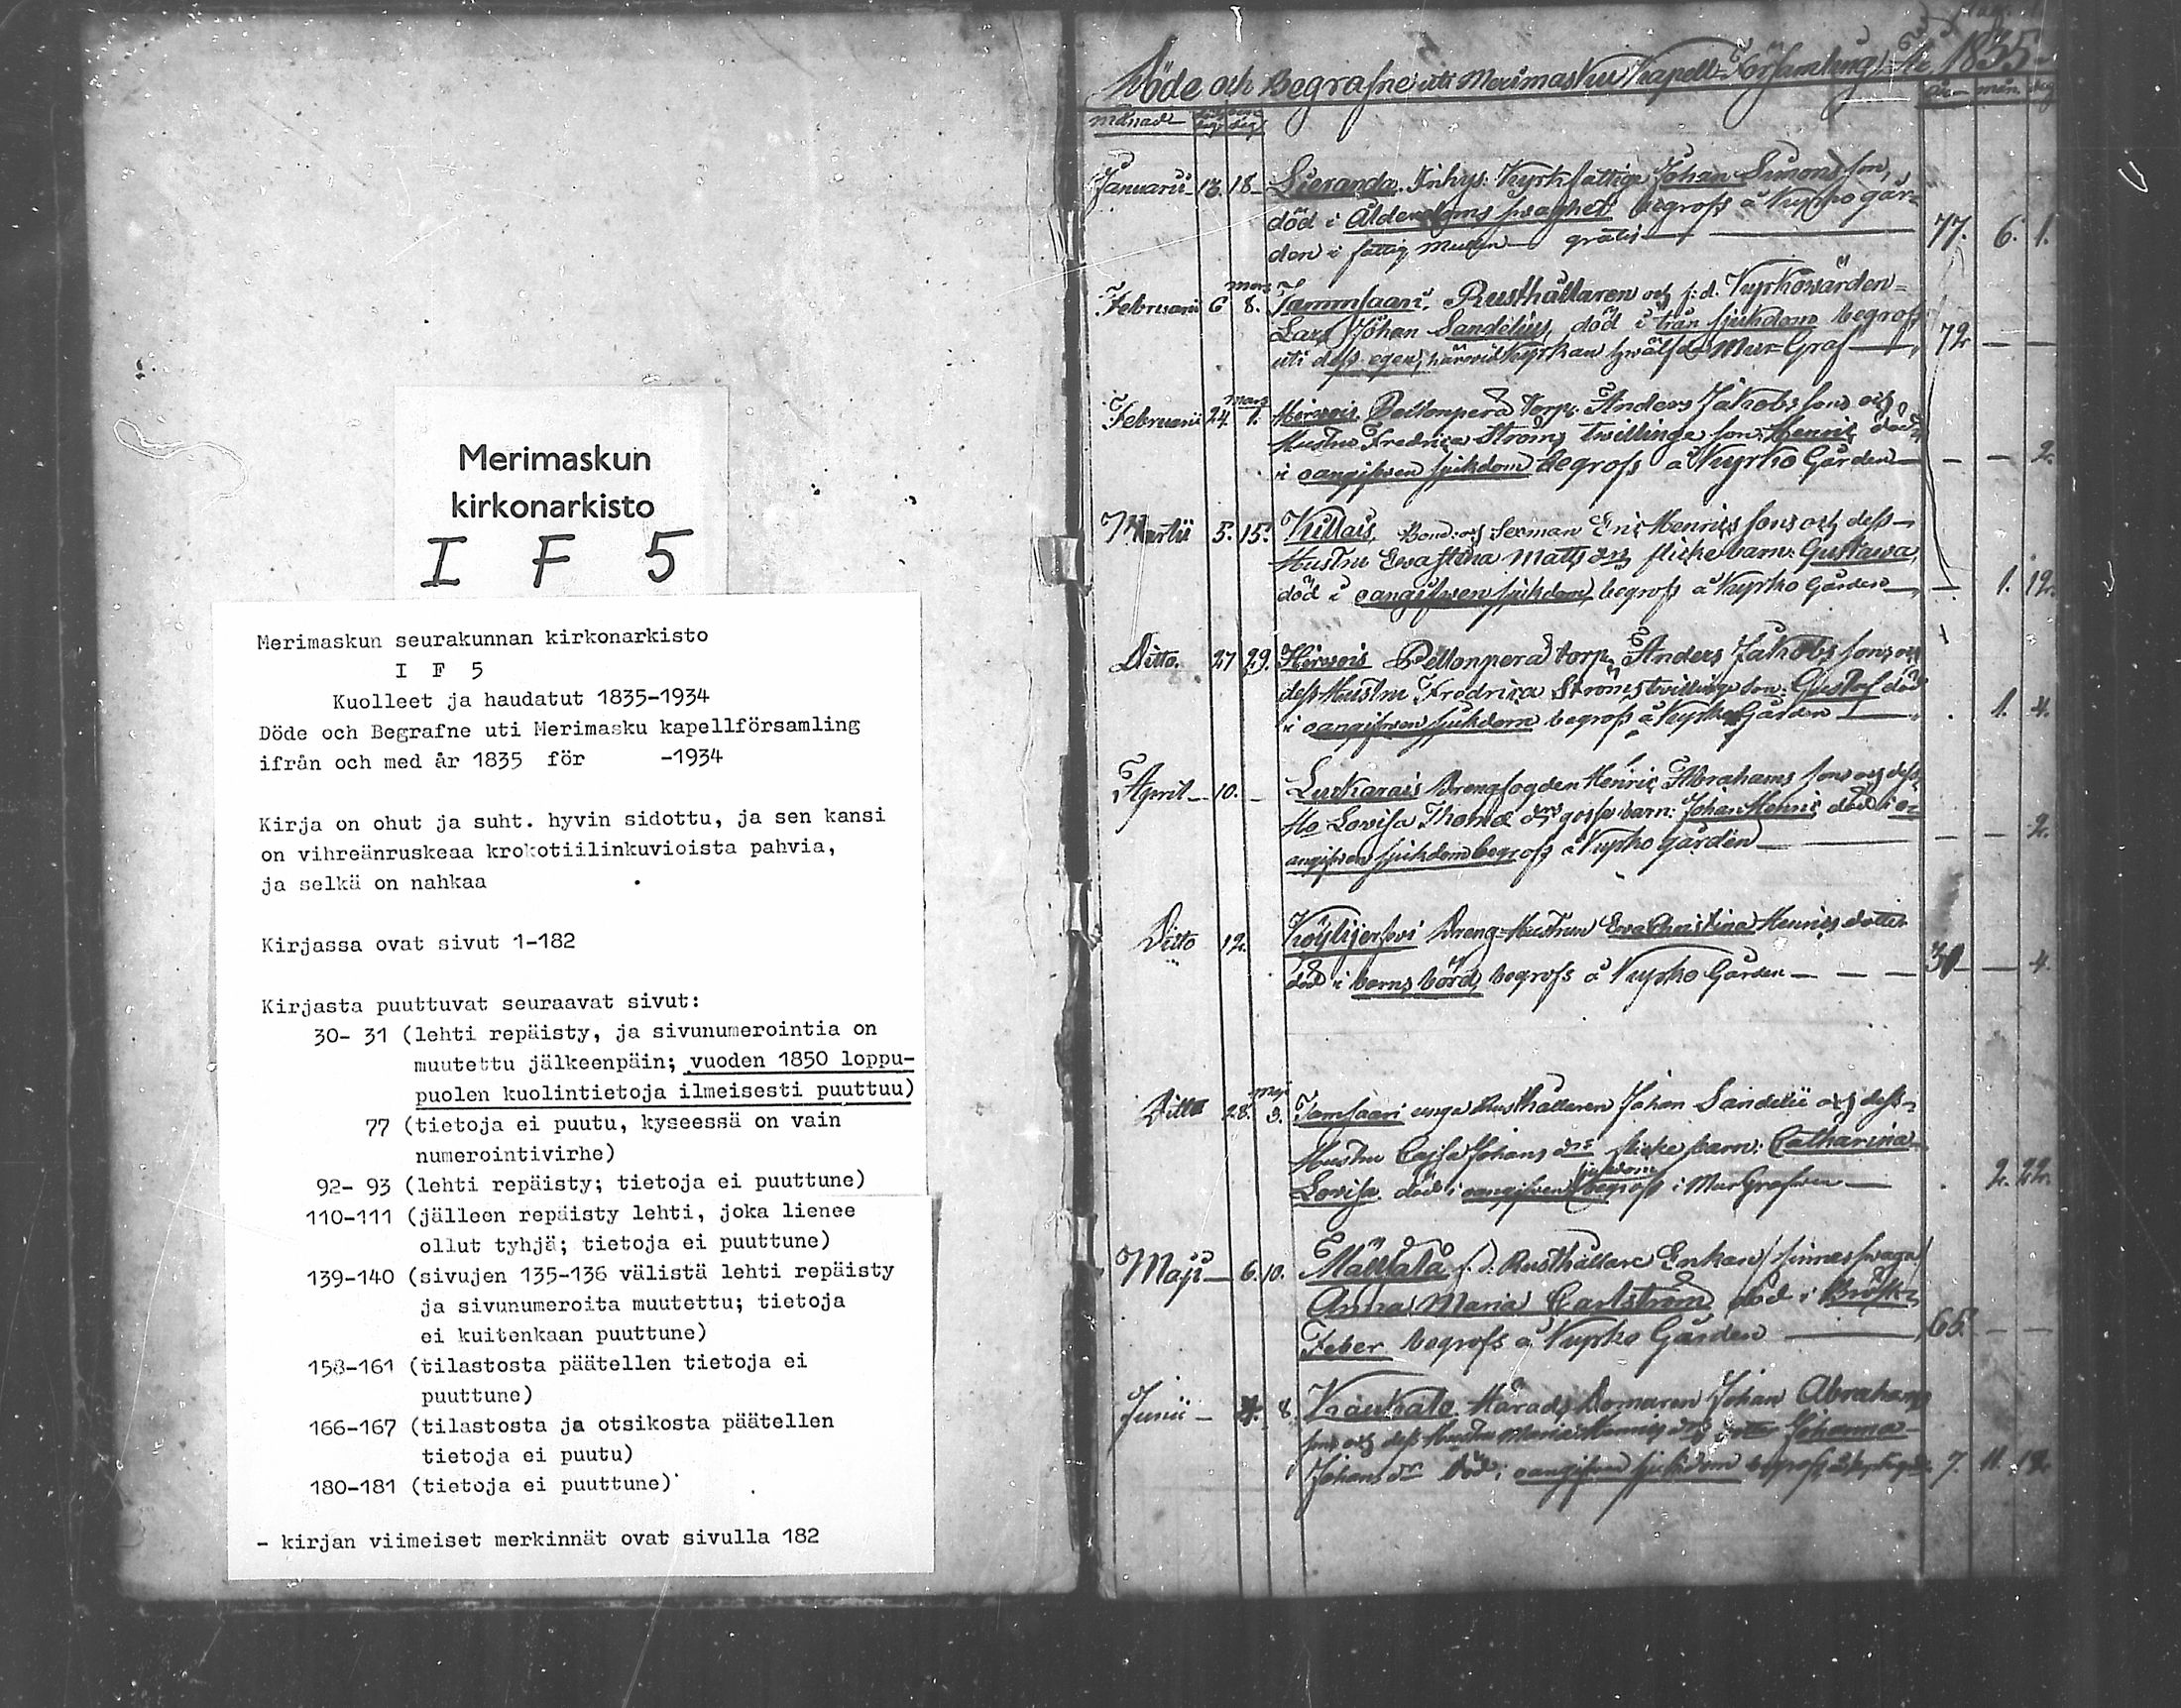 Merimaskun
kirkonarkisto
I F 5
Merimaskun seurakunnan kirkonarkisto
I F 5
Kuolleet ja haudatut 1835-1934
Döde och Begrafne uti Merimasku kapellförsamling
ifrån och med år 1835 för -1934
Kirja on ohut ja suht. hyvin sidottu, ja sen kansi
on vihreänruskeaa krokotiilinkuvioista pahvia,
ja selkä on nahkaa
Kirjassa ovat sivut 1-182
Kirjasta puuttuvat seuraavat sivut:
30- 31 (lehti repäisty, ja sivunumerointia on
muutettu jälkeenpäin; vuoden 1850 loppu-
puolen kuolintietoja ilmeisesti puuttuu)
77 (tietoja ei puutu, kyseessä on vain
numerointivirhe)
92- 93 (lehti repäisty; tietoja ei puuttune)
110-111 (jälleen repäisty lehti, joka lienee
ollut tyhjä; tietoja ei puuttune)
139-140 (sivujen 135-136 välistä lehti repäisty
ja sivunumeroita muutettu; tietoja
ei kuitenkaan puuttune)
158-161 (tilastosta päätellen tietoja ei
puuttune)
166-167 (tilastosta ja otsikosta päätellen
tietoja ei puutu)
180-181 (tietoja ei puuttune)
- kirjan viimeiset merkinnät ovat sivulla 182
Döde och Begrafne uti Merimasku Kapell-Församling 1835
månad år mån. dag
Januarii 13. 18 Inhys. Kyrkfattige Johan Simons son,
död i Ålderdoms swaghet begrofs å Kyrko går-
den i fattig gratis 77. 6. 1.
Februarii 6 mars 8. Tammsaari Rusthållaren och f.d. Kyrkowärden
Lars Johan Sandelius, död i sjukdom begrofs
uti dess egen Kyrkan Mur-Graf 72 — —
Februarii 24 mars 1. Hirwois Torp. Anders Jakobs sons och
Hustru Fredrica Ströms twillinge son: Henric död
i oangifwen sjukdom begrofs å Kyrko Gården — — 2.
Martii 5. 15. Killais Eric Henrics sons och dess
Hustru Ewa Stina Matts drs flicke barn: Gustawa,
död i oangifwen sjukdom, begrofs å Kyrko Gården — 1. 12.
Ditto. 27 29. Hirwois Peltonperä torp. Anders Jakobs sons och
dess Hustru Fredrica Ströms twillinge son: Gustaf död
i oangifwen sjukdom begrofs å Kyrko Gården 1. 4.
April 10. Luukarais Drengfogden Henric Abrahams sons och dess
Ho Lovisa Thomæ drs gosse barn: Johan Henric död i o-
angifwen sjukdom begrofs å Kyrko gården — — 2.
Ditto 12. Köylijerfwi Dreng-Hustrun Ewa Christina Henrics dotter
död i barns börd, begrofs å Kyrko Gården — — — — 4.
Ditto 28. maji 3. Tamsaari unge Rusthållaren Johan Sandelii och dess
Hustru Cajsa Johans drs flicke barn: Catharina
Lovisa död i oangifwen sjukdom begrofs i Mur Grafwen — 2. 22.
Maji 6. 10. f.d. Rusthållare Enkan
Anna Maria Carlström död i Bröst-
Feber begrofs å Kyrko Gården 65. — —
Junii 8. Härads Domaren Johan Abrahams
sons och dess Hustru Maria Henrics drs dotter Johanna
Johans dr död i oangifwen sjukdom begrofs 7. 11. 12.